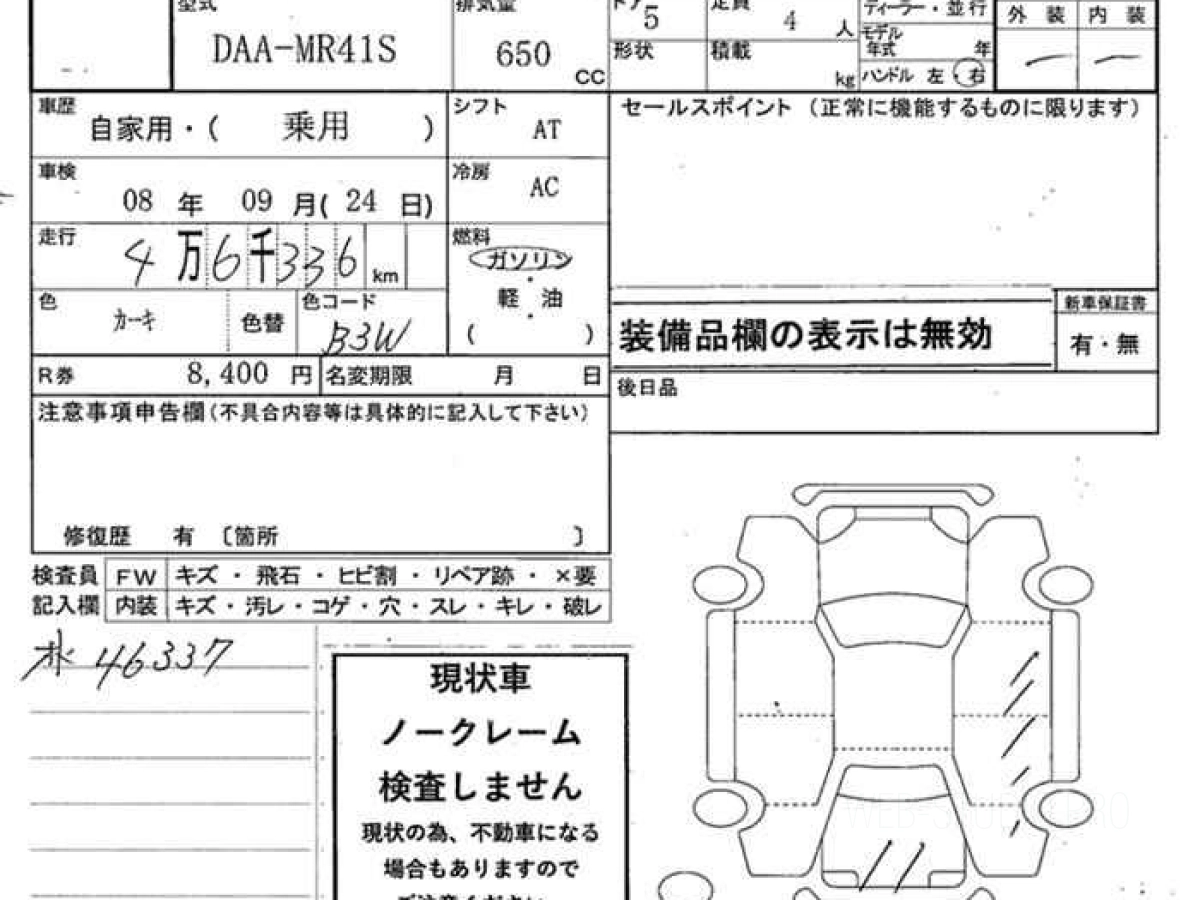 型式 排気量 ドア 5 定員 4 人 ディーラー・並行 外装 内装
DAA-MR41S 650 CC モデル年式 年
形状 積載 kg ハンドル 左・右
車歴 自家用・( 乗用 ) シフト AT セールスポイント (正常に機能するものに限ります)
車検 08 年 09 月( 24 日) 冷房 AC
走行 4万6千336 km 燃料 ガソリン・軽油・( )
色 カーキ 色替 色コード B3W
装備品欄の表示は無効 新車保証書 有・無
R券 8,400 円 名変期限 月 日 後日品
注意事項申告欄(不具合内容等は具体的に記入して下さい)
修復歴 有 〔箇所 〕
検査員 FW キズ・飛石・ヒビ割・リペア跡・×要
記入欄 内装 キズ・汚レ・コゲ・穴・スレ・キレ・破レ
46337
現状車
ノークレーム
検査しません
現状の為、不動車になる
場合もありますので
ご注意ください